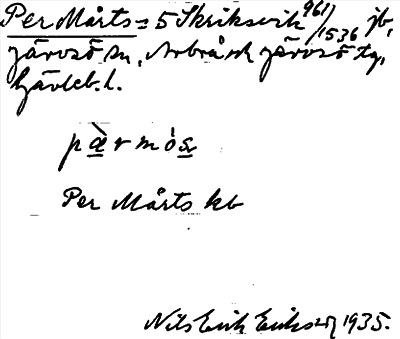 Per Mårts = 5 Skriksvik 961/1536 jb,
Järvsö sn, Arbrå och Järvsö tg,
Gävleb. l.
pàrmós
Per Mårts kb
Nils Erik Eriksson 1935.